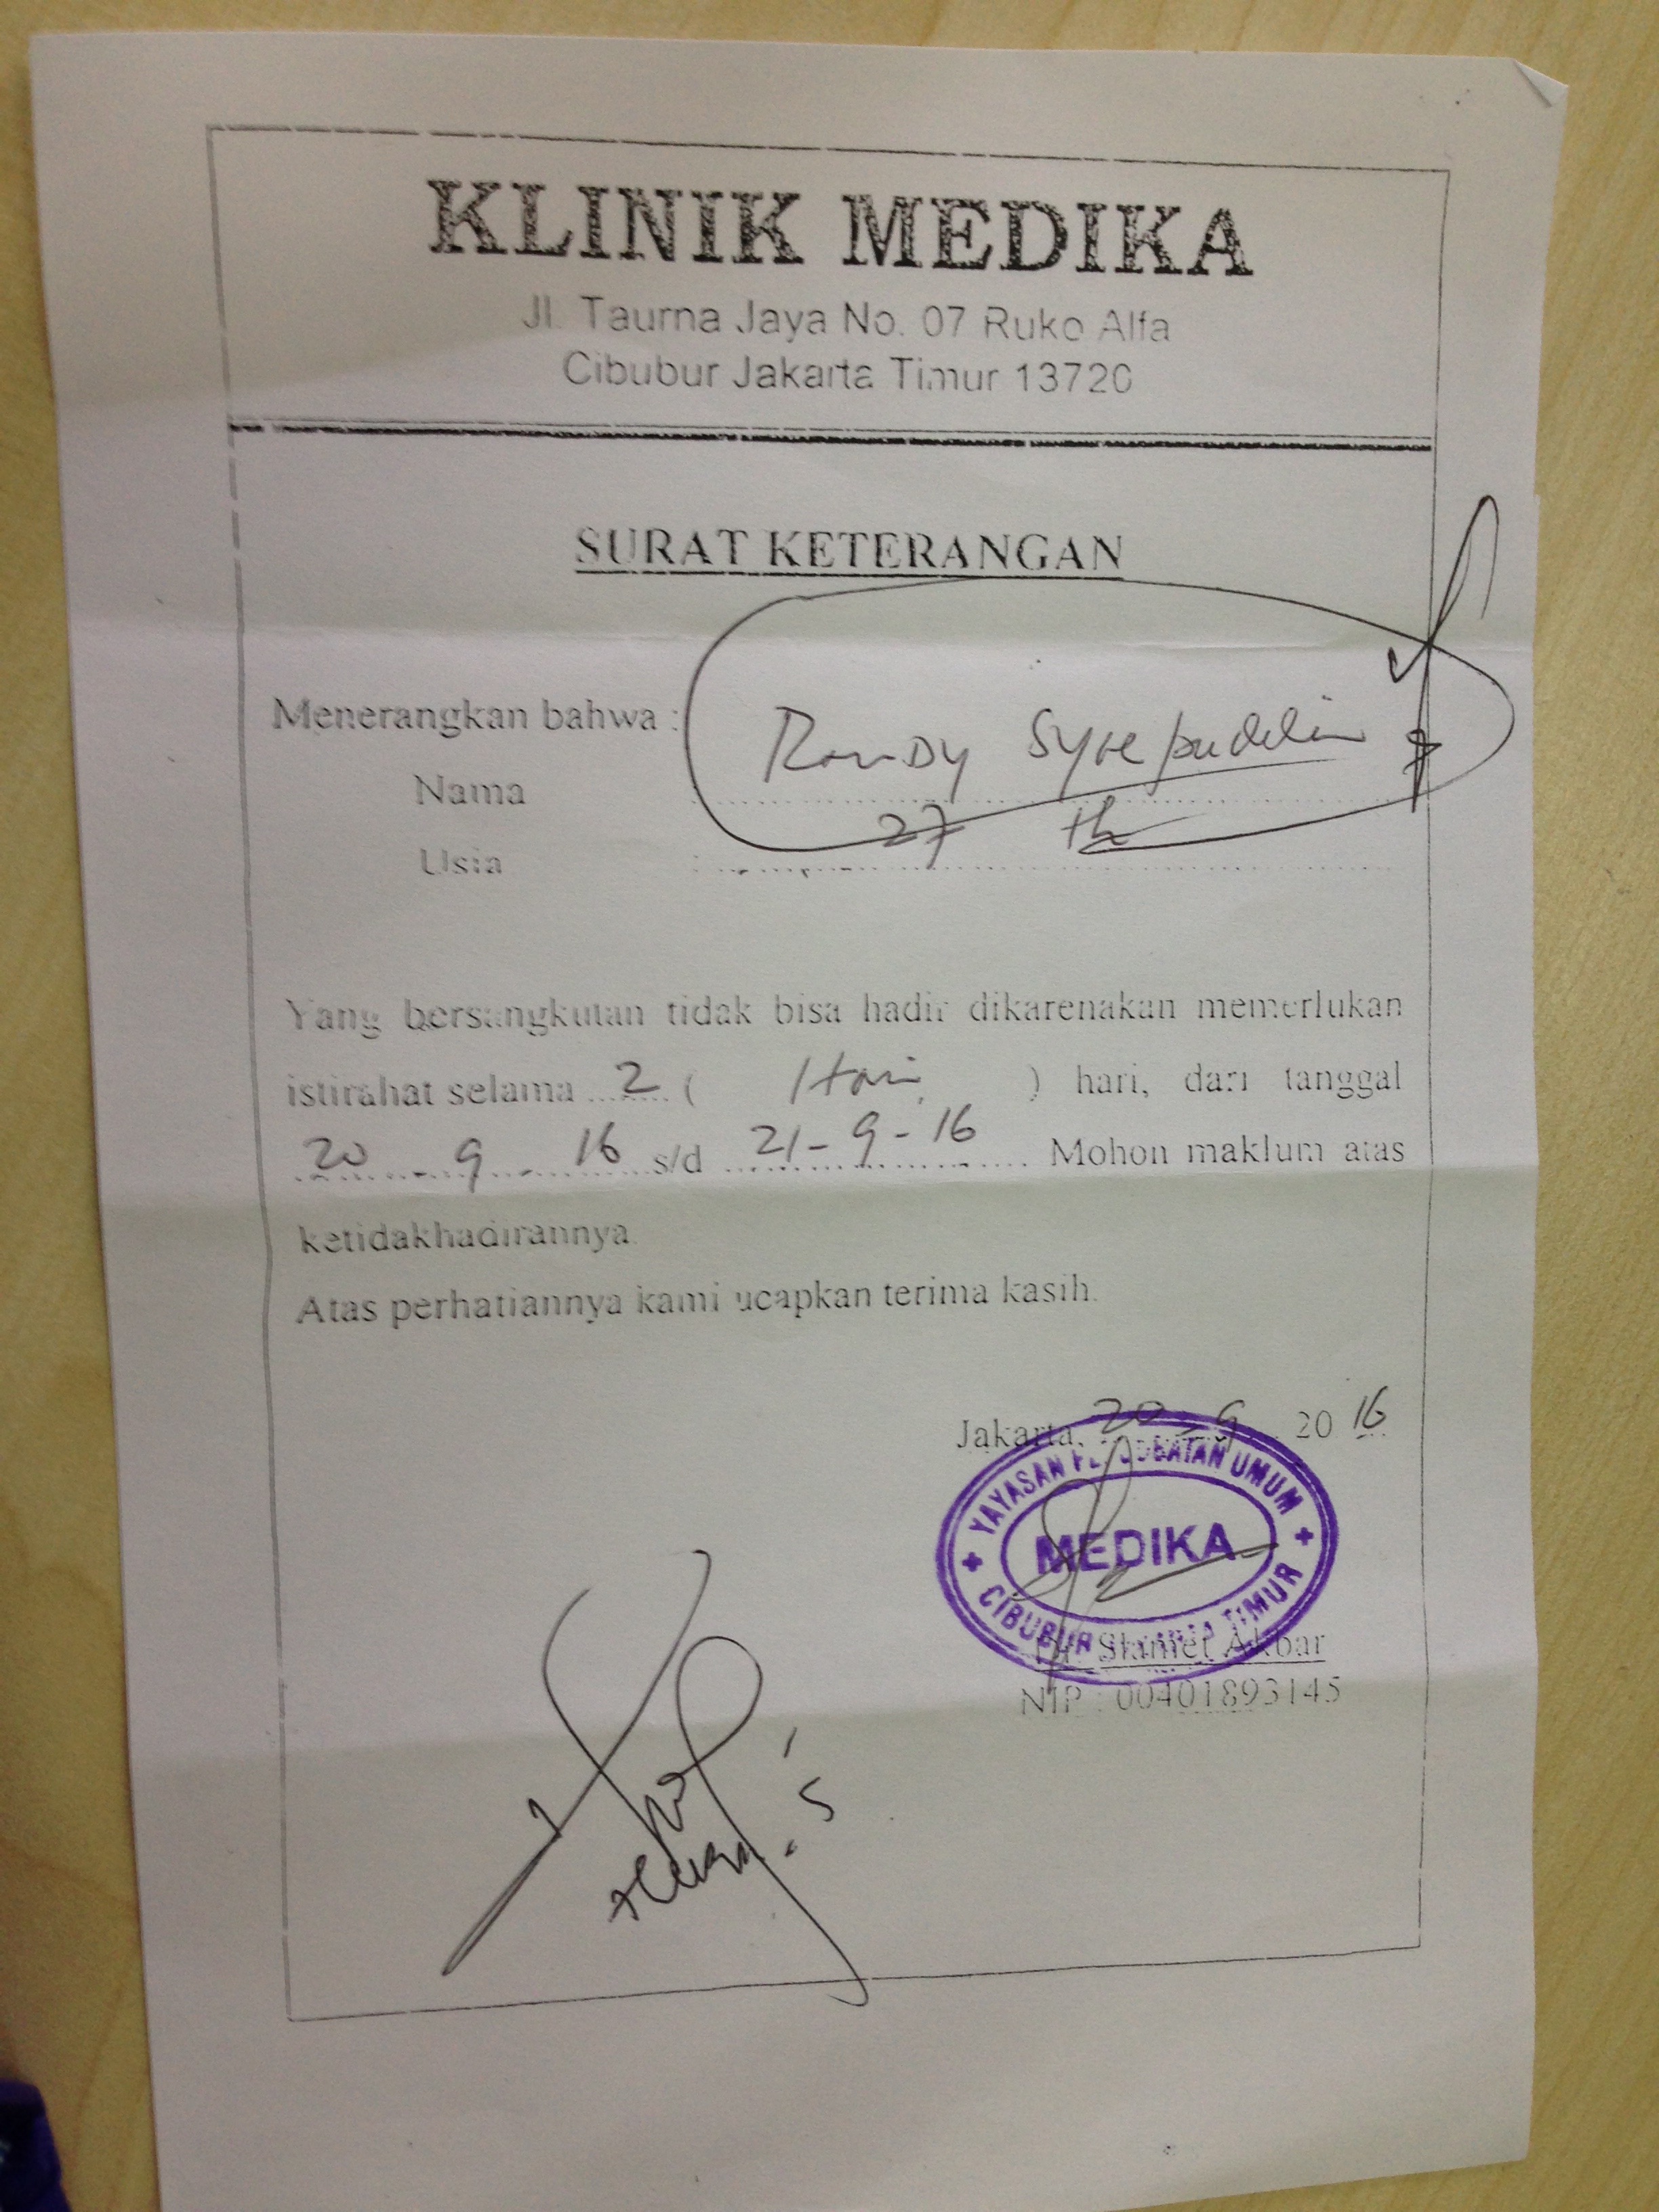 KLINIK MEDIKA
Jl. Taurna Jaya No. 07 Ruko Alfa
Cibubur Jakarta Timur 13720
SURAT KETERANGAN
Menerangkan bahwa :
Nama : Randy Syaepuddin
Usia : 27 th
Yang bersangkutan tidak bisa hadir dikarenakan memerlukan
istirahat selama 2 ( Hari ) hari, dari tanggal
20 - 9 - 16 s/d 21-9-16 Mohon maklum atas
ketidakhadirannya.
Atas perhatiannya kami ucapkan terima kasih.
Jakarta, 20 - 9 - 20 16
YAYASAN PENGOBATAN UMUM
MEDIKA
CIBUBUR JAKARTA TIMUR
Dr. Slamet Akbar
NIP : 00401893145